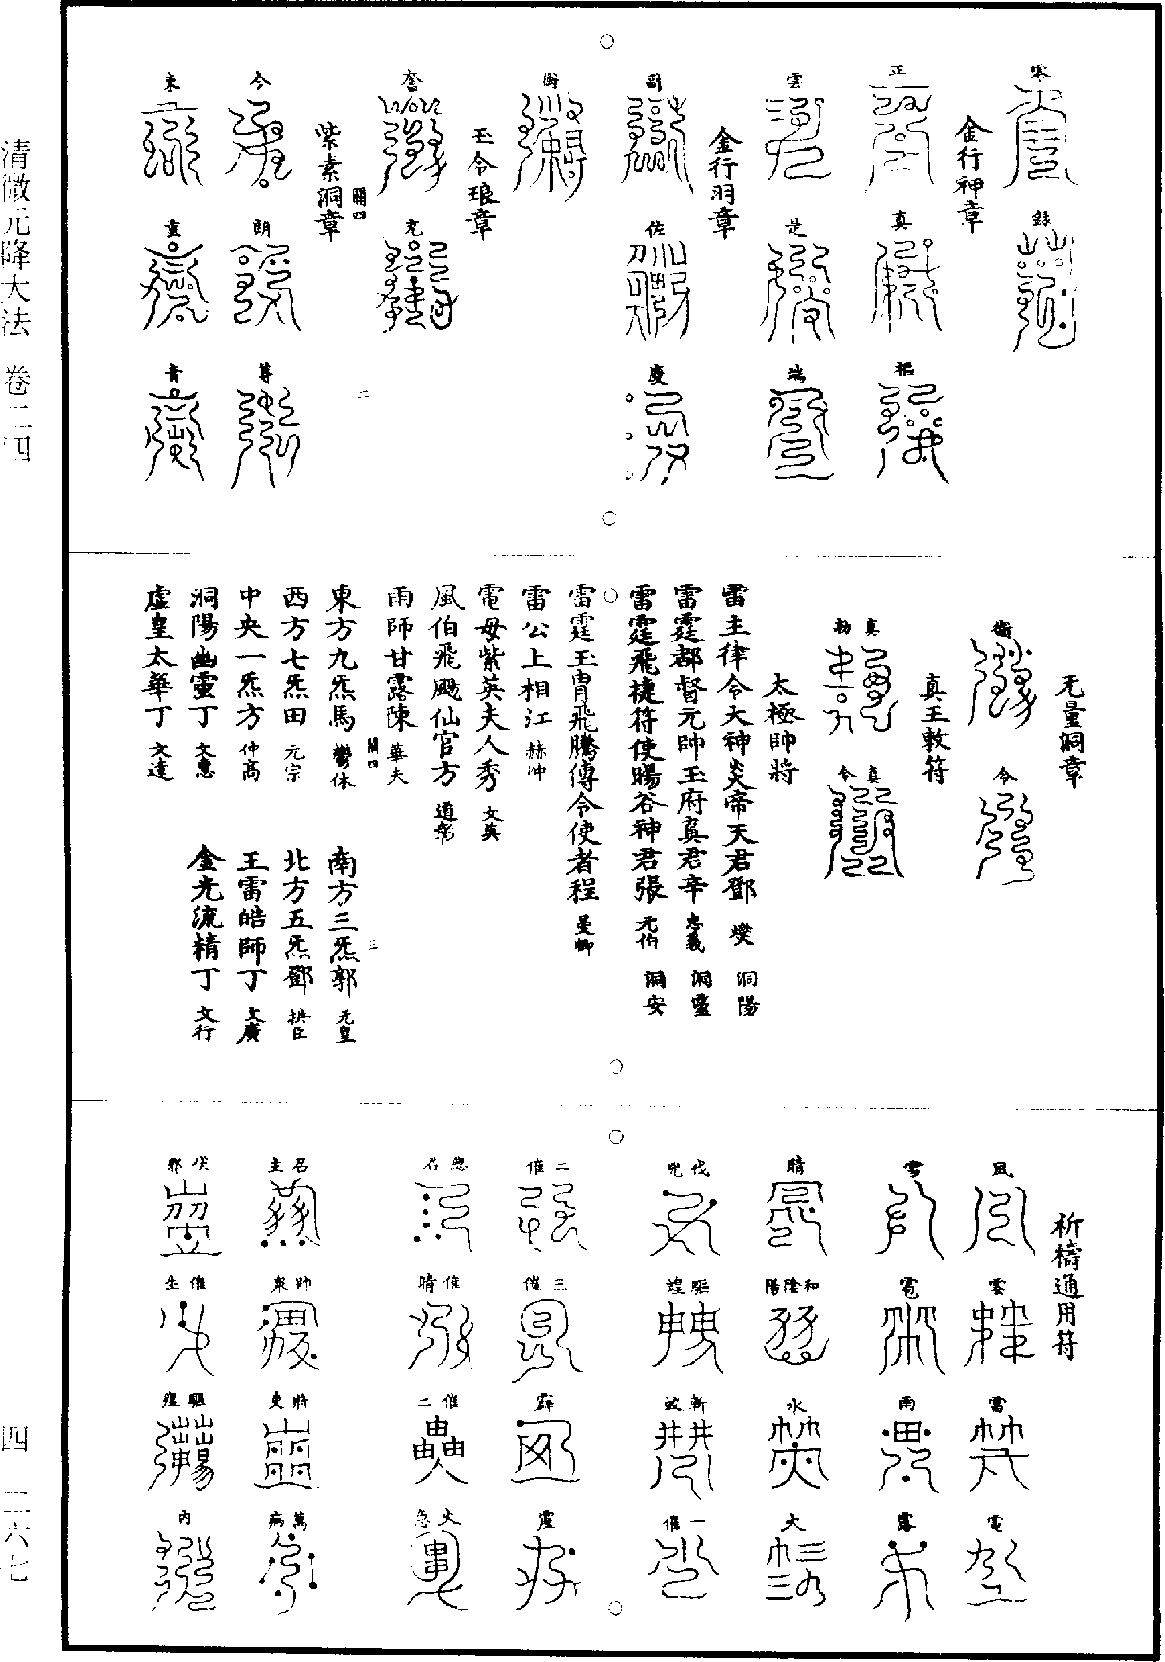 清微元降大法　卷二四
四　二六七
金行神章
正
真
雲
是
瑞
金行羽章
佐
慶
玉令琅章
充
紫素洞章
開四
二
今
朗
尊
東
重
青
无量洞章
衛
令
真王敕符
真勅
真令
太極帥將
雷主律令大神炎帝天君鄧　燮　洞陽
雷霆都督元帥玉府真君辛　忠義　洞靈
雷霆飛捷符使暘谷神君張　元伯　洞安
雷霆玉胄飛騰傳令使者程　曼卿
雷公上相江　赫冲
電母紫英夫人秀　文英
風伯飛颺仙官方　道彰
雨師甘露陳　華夫
開四
三
東方九炁馬　鬱休　南方三炁郭　元皇
西方七炁田　元宗　北方五炁鄧　拱臣
中央一炁方　仲高　王雷皓師丁　文廣
洞陽幽靈丁　文惠　金光流精丁　文行
虛皇太華丁　文達
祈禱通用符
風
雲
雷
電
雪
雹
雨
露
晴
和陰陽
水
火
伐
驅蝗
斬
一催
二催
三催
霹
催晴
催二
火急
召主
帥眾
將吏
萬病
催生
驅瘟
內